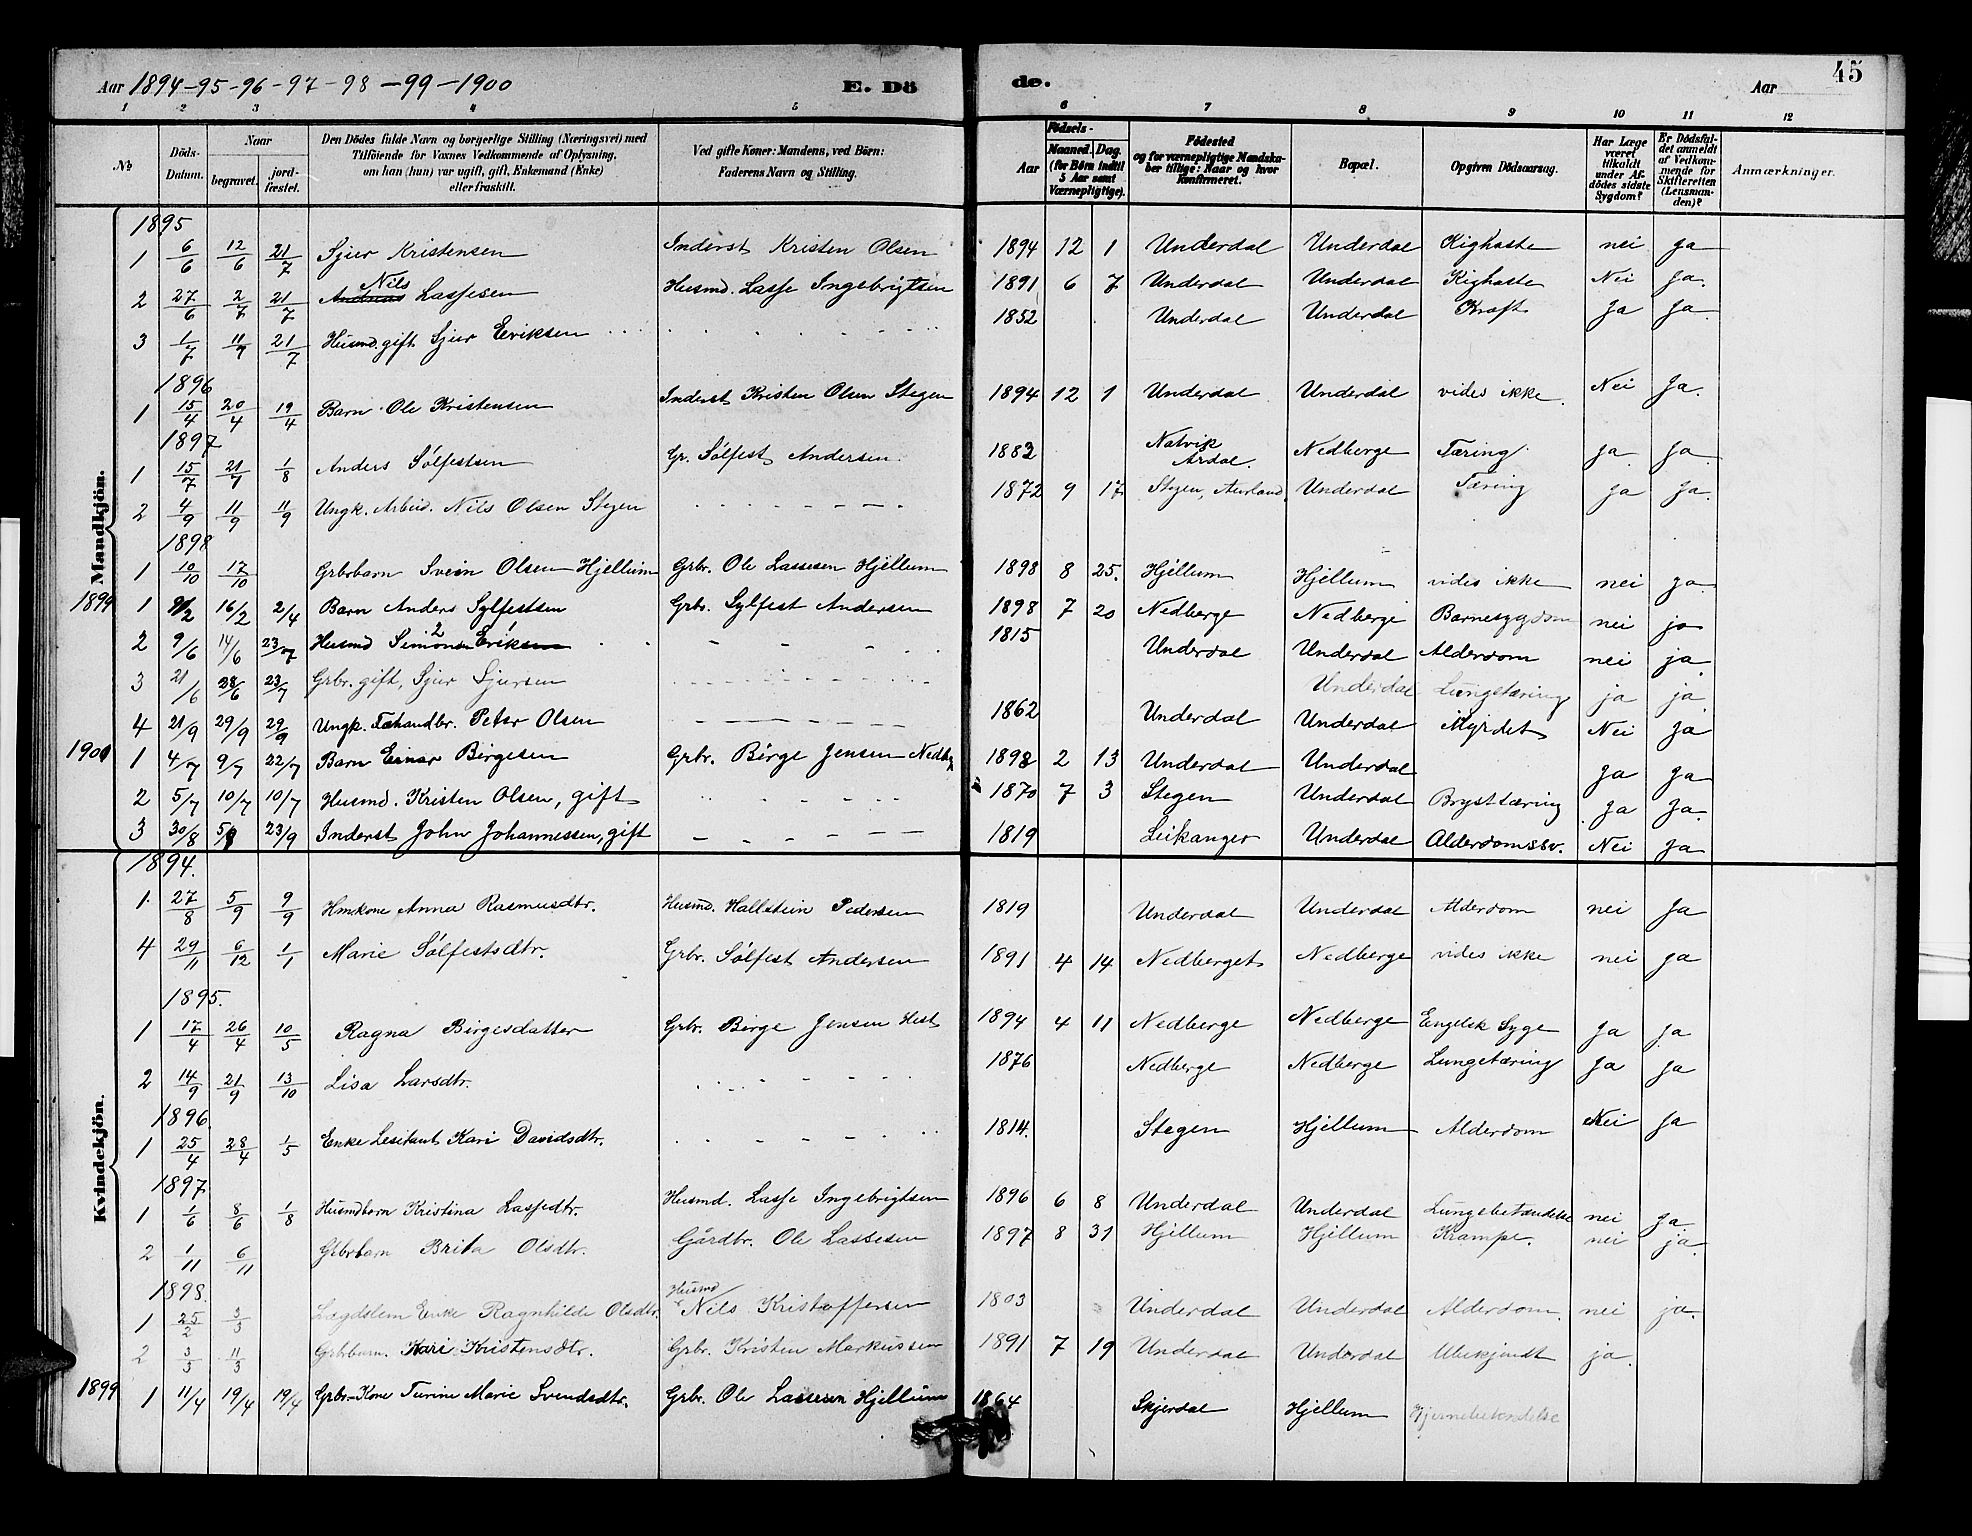 Aar 1894-95-96-97-98-99-1900 E. Dö de. Aar 45
1 2 3 4 5 6 7 8 9 10 11 12
№ Döds-Datum. Naar begravet. jord-fæstet. Den Dödes fulde Navn og borgerlige Stilling (Næringsvei) med Tilföiende for Voxnes Vedkommende af Oplysning, om han (hun) var ugift, gift, Enkemand (Enke) eller fraskilt. Ved gifte Koner: Mandens, ved Börn: Faderens Navn og Stilling. Födsels- Aar Maaned. Dag. (for Börn indtil 5 Aar samt Værnepligtige). Födested og for værnepligtige Mandska-ber tillige: Naar og hvor konfirmeret. Bopæl. Opgiven Dödsaarsag. Har Læge været tilkaldt under Af-dödes sidste Sygdom? Er Dödsfal-det anmeldt af Vedkom-mende for Skifteretten (Lensman-den)? Anmærkninger.
Mandkjön.
1895
1 6/6 12/6 21/7 Sjur Kristensen Inderst Kristen Olsen 1894 12 1 Underdal Underdal Kighoste nei ja
2 27/6 2/7 21/7 Nils Andreas Lassesen Husmd. Lasse Ingebrigtsen 1891 6 7 Underdal Underdal Kighoste Nei Ja.
3 1/7 11/7 21/7 Husmd. gift Sjur Eriksen 1852 Underdal Underdal Kræft Ja Ja
1896
1 15/4 20/4 19/4 Barn Ole Kristensen Inderst Kristen Olsen Stegen 1894 12 1 Underdal Underdal vides ikke. Nei Ja.
1897
1 15/7 21/7 1/8 Anders Sølfestsen Gr. Sølfest Andersen. 1883 Natvik Årdal. Nedberge Tæring Ja Ja.
2 4/9 11/9 11/9 Ungk. Arbeid. Nils Olsen Stegen 1872 9 17 Stegen, Aurland Underdal Tæring Ja Ja.
1898
1 10/10 17/10 Grbrbarn Svein Olsen Hjellum Grbr. Ole Lassesen Hjellum 1898 8 25. Hjellum Hjellum vides ikke nei ja
1899 1 9/2 16/2 2/4 Barn Anders Sylfestsen Grbr. Sylfest Andersen 1898 7 20 Nedberge Nedberge Barnesygdom nei ja
2 9/6 14/6 23/7 Husmd Simon Eriksen 1815 Underdal Underdal Alderdom nei ja
3 21/6 28/6 23/7 Grbr. gift, Sjur Sjursen Underdal Lungetæring ja ja
4 21/9 29/9 29/9 Ungk. Fæhandlr. Peter Olsen 1862 Underdal Underdal Myrdet Nei Ja
1900 1 4/7 9/7 22/7 Barn Einar Børgesen Grbr. Børge Jensen Nedbg 1898 2 13 Underdal Underdal Ja Ja
2 5/7 10/7 10/7 Husmd. Kristen Olsen, gift 1870 7 3 Stegen Underdal Brysttæring Ja Ja.
3 30/8 5/9 23/9 Inderst John Johannessen, gift 1819 Leikanger Underdal Alderdomssv. Nei Ja
Kvindekjön.
1894.
1. 27/8 5/9 9/9 Hmkone Anna Rasmusdtr. Husmd. Hallstein Pedersen 1819 Underdal Underdal Alderdom nei Ja
4 29/11 6/12 1/1 Marie Sølfestsdtr. Grbr. Sølfest Andersen 1891 4 14 Nedberget Nedberge vides ikke nei ja
1895.
1 17/4 26/4 10/5 Ragna Børgesdatter Grbr. Børge Jensen Hest 1894 4 11 Nedberge Nedberge Engelsk Syge Ja Ja
2 14/9 21/9 13/10 Lisa Larsdtr. 1876 Nedberge Nedberge Lungetæring Ja Ja
1896.
1 25/4 28/4 1/5 Enke Kari Davidsdtr. 1814. Stegen Hjellum Alderdom Nei Ja
1897
1 1/6 8/6 1/8 Husmdbarn Kristina Lassedtr. Husmd. Lasse Ingebrigtsen 1896 6 8 Underdal Underdal Lungebetændelse nei ja.
2 1/11 6/11 Grbrbarn Brita Olsdtr. Gårdbr. Ole Lassesen 1897 8 31 Hjellum Hjellum Krampe. nei ja.
1898.
1 25/2 3/3 Lægdslem Enke Ragnhilde Olsdtr. Husmd Nils Kristoffersen 1803 Underdal Underdal Alderdom. nei ja.
2 3/3 11/3 Grbrbarn. Kari Kristensdtr. Grbr. Kristen Markussen 1891 7 19 Underdal Underdal Ubekjendt ja.
1899 1 11/4 19/4 19/4 Grbr.-Kone Turine Marie Svendsdtr. Grbr. Ole Lassesen Hjellum 1864 Skjerdal Hjellum Hjernebetendelse